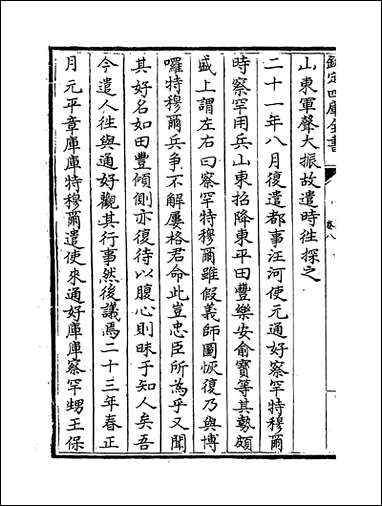 欽定四庫全書
卷八
山東軍聲大振故遣時徃探之
二十一年八月復遣都事汪河使元通好察罕特穆爾
時察罕用兵山東招降東平田豐樂安俞寶等其勢頗
盛上謂左右曰察罕特穆爾雖假義師圖恢復乃與博
囉特穆爾兵爭不解屢格君命此豈忠臣所為乎又聞
其好名如田豐傾側亦復待以腹心則昧于知人矣吾
今遣人徃與通好觀其行事然後議焉二十三年春正
月元平章庫庫特穆爾遣使來通好庫庫察罕甥王保